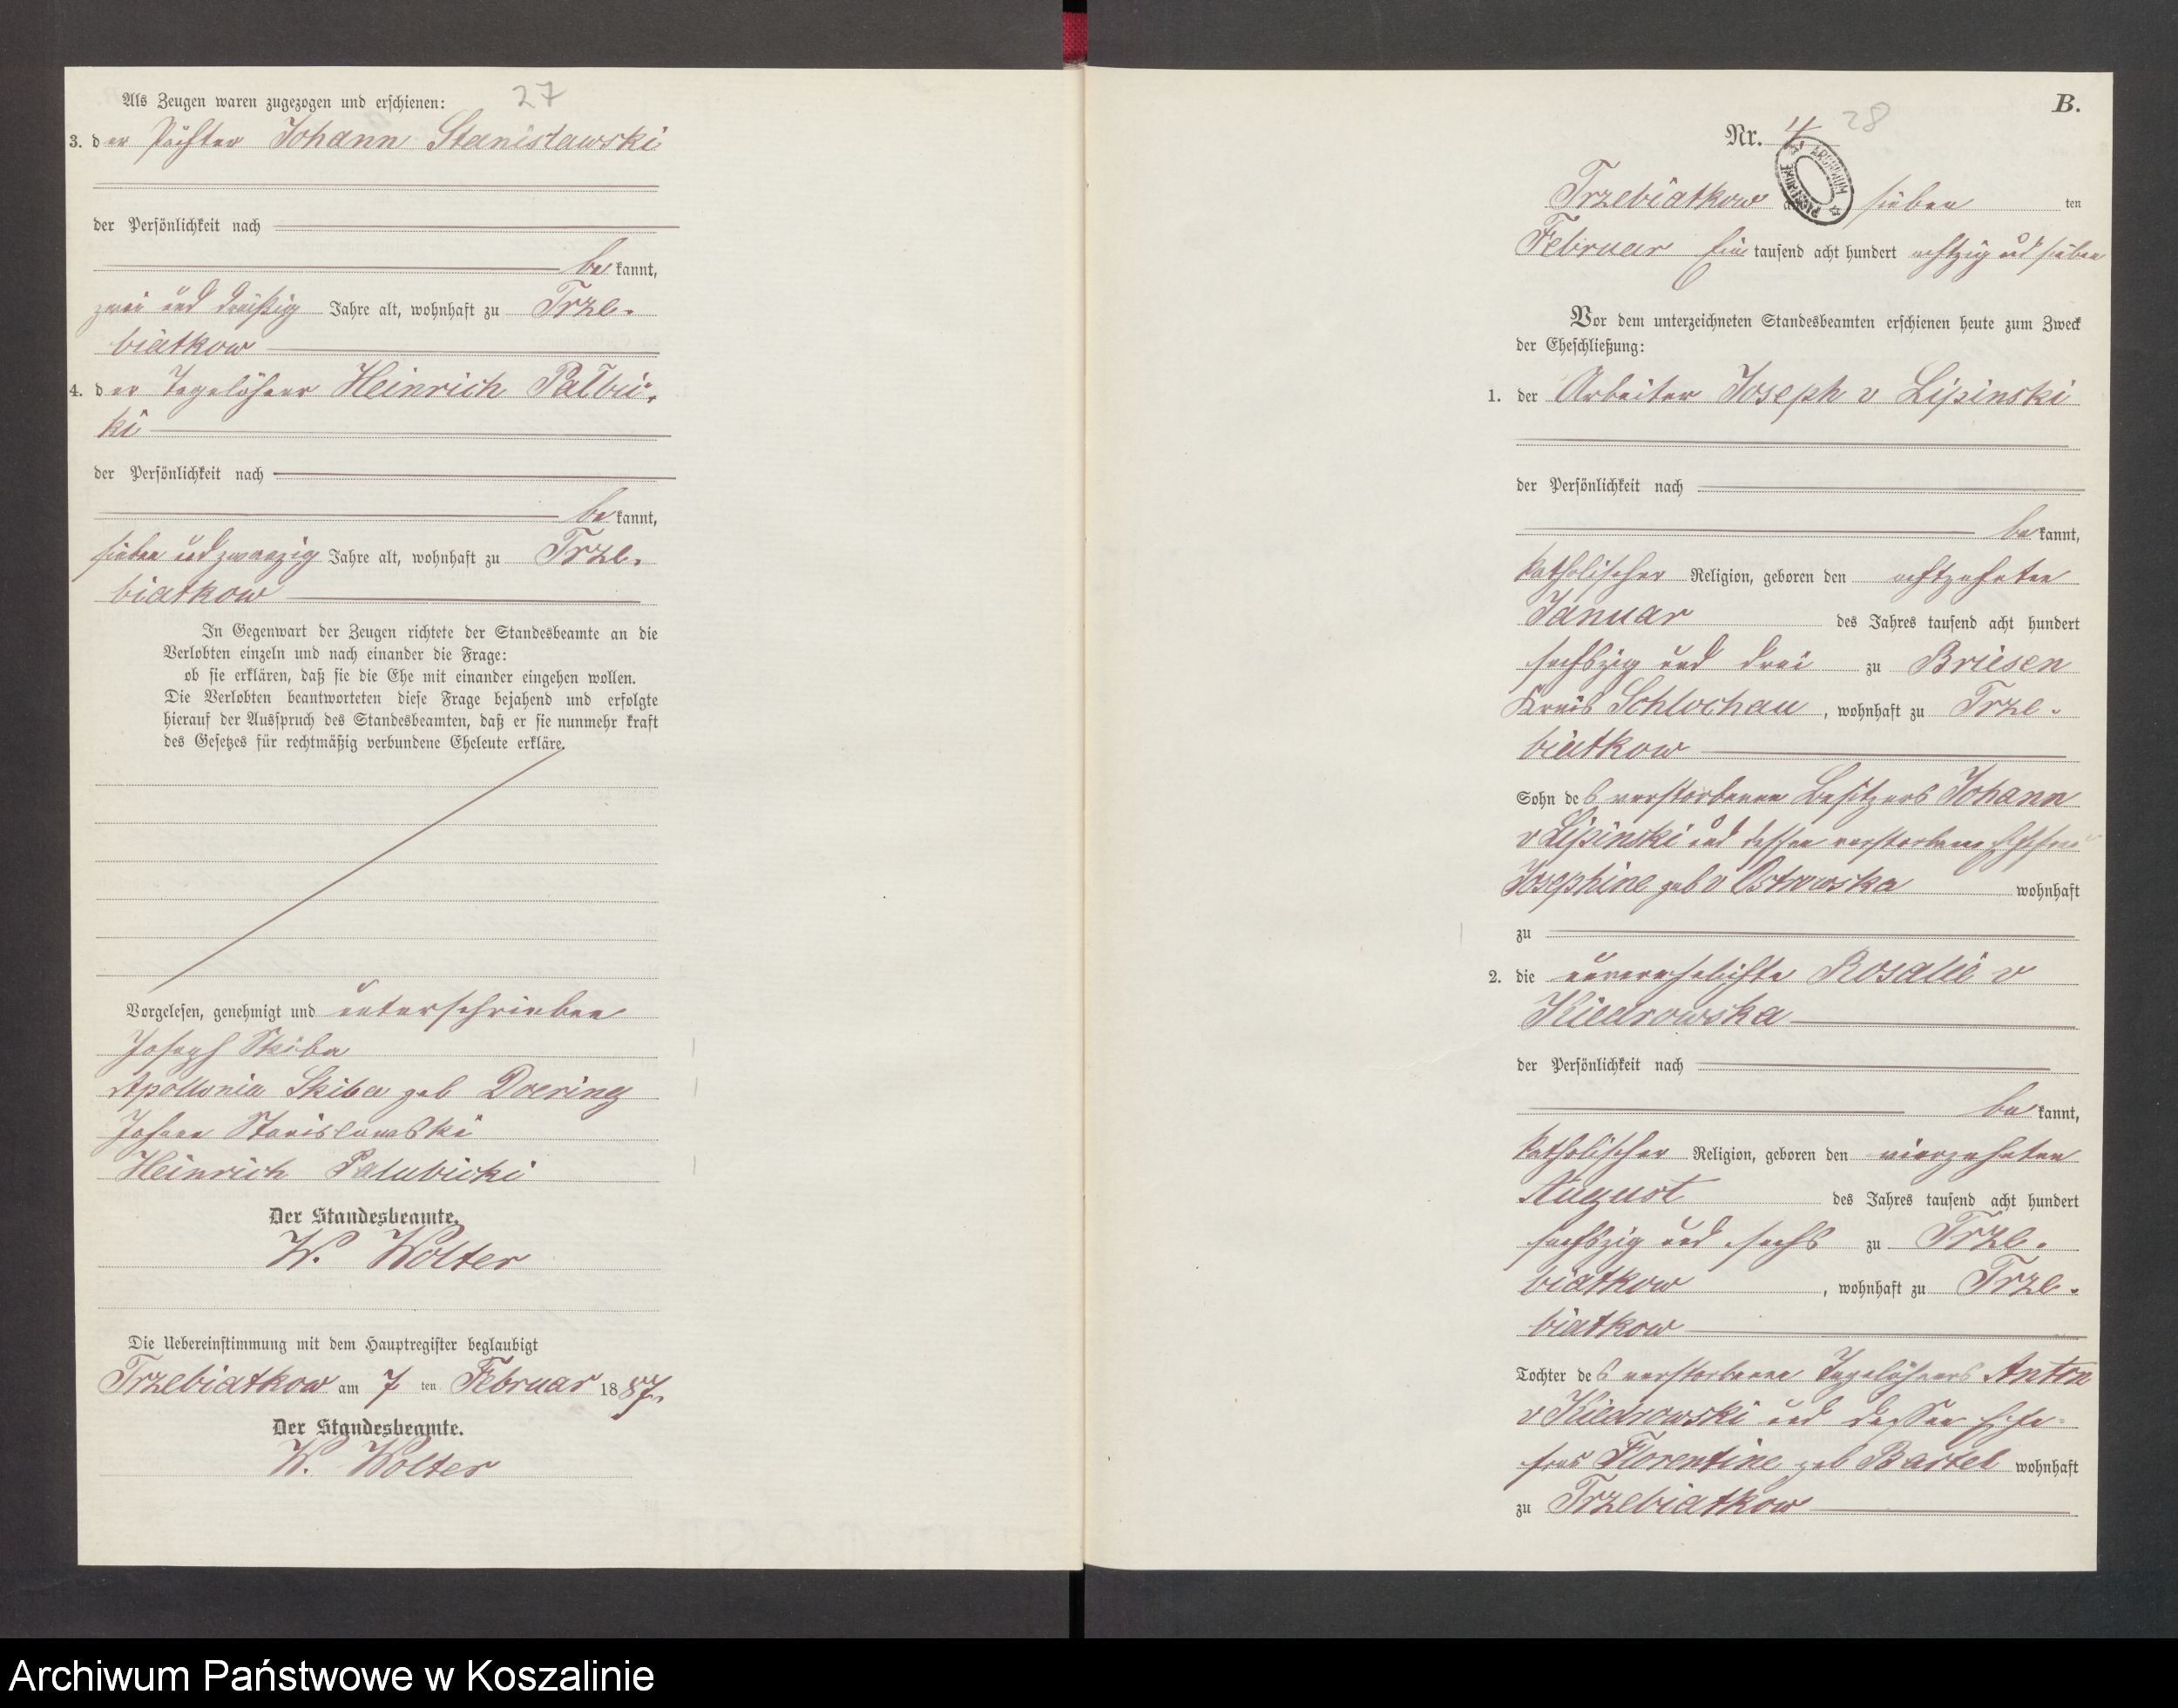 Als Zeugen waren zugezogen und erschienen:
27
3. der Pächter Johann Stanislawski
der Persönlichkeit nach
bekannt,
zwei und dreißig Jahre alt, wohnhaft zu Trze-
biatkow
4. der Tagelöhner Heinrich Palbic-
ki
der Persönlichkeit nach
bekannt,
sieben und zwanzig Jahre alt, wohnhaft zu Trze-
biatkow
In Gegenwart der Zeugen richtete der Standesbeamte an die
Verlobten einzeln und nach einander die Frage:
ob sie erklären, daß sie die Ehe mit einander eingehen wollen.
Die Verlobten beantworteten diese Frage bejahend und erfolgte
hierauf der Ausspruch des Standesbeamten, daß er sie nunmehr kraft
des Gesetzes für rechtmäßig verbundene Eheleute erkläre.
Vorgelesen, genehmigt und unterschrieben
Joseph Skiba
Apollonia Skiba geb Doering
Johann Stanislawski
Heinrich Palubicki
Der Standesbeamte.
W. Wolter
Die Uebereinstimmung mit dem Hauptregister beglaubigt
Trzebiatkow am 7 ten Februar 1887.
Der Standesbeamte.
W. Wolter
B.
Nr. 4
28
ARCHIWUM PAŃSTWOWE
Trzebiatkow am sieben ten
Februar Ein tausend acht hundert achtzig und sieben
Vor dem unterzeichneten Standesbeamten erschienen heute zum Zweck
der Eheschließung:
1. der Arbeiter Joseph v Lipinski
der Persönlichkeit nach
bekannt,
katholischer Religion, geboren den achtzehnten
Januar des Jahres tausend acht hundert
sechszig und drei zu Briesen
Kreis Schlochau, wohnhaft zu Trze-
biatkow
Sohn des verstorbenen Besitzers Johann
v Lipinski und dessen verstorbene Ehefrau
Josephine geb v Ostrowska wohnhaft
zu
2. die unverehelichte Rosalie v
Kiedrowska
der Persönlichkeit nach
bekannt,
katholischer Religion, geboren den vierzehnten
August des Jahres tausend acht hundert
sechszig und sechs zu Trze-
biatkow, wohnhaft zu Trze-
biatkow
Tochter des verstorbenen Tagelöhners Anton
v Kiedrowski und dessen Ehe-
frau Florentine geb Bartel wohnhaft
zu Trzebiatkow
Archiwum Państwowe w Koszalinie